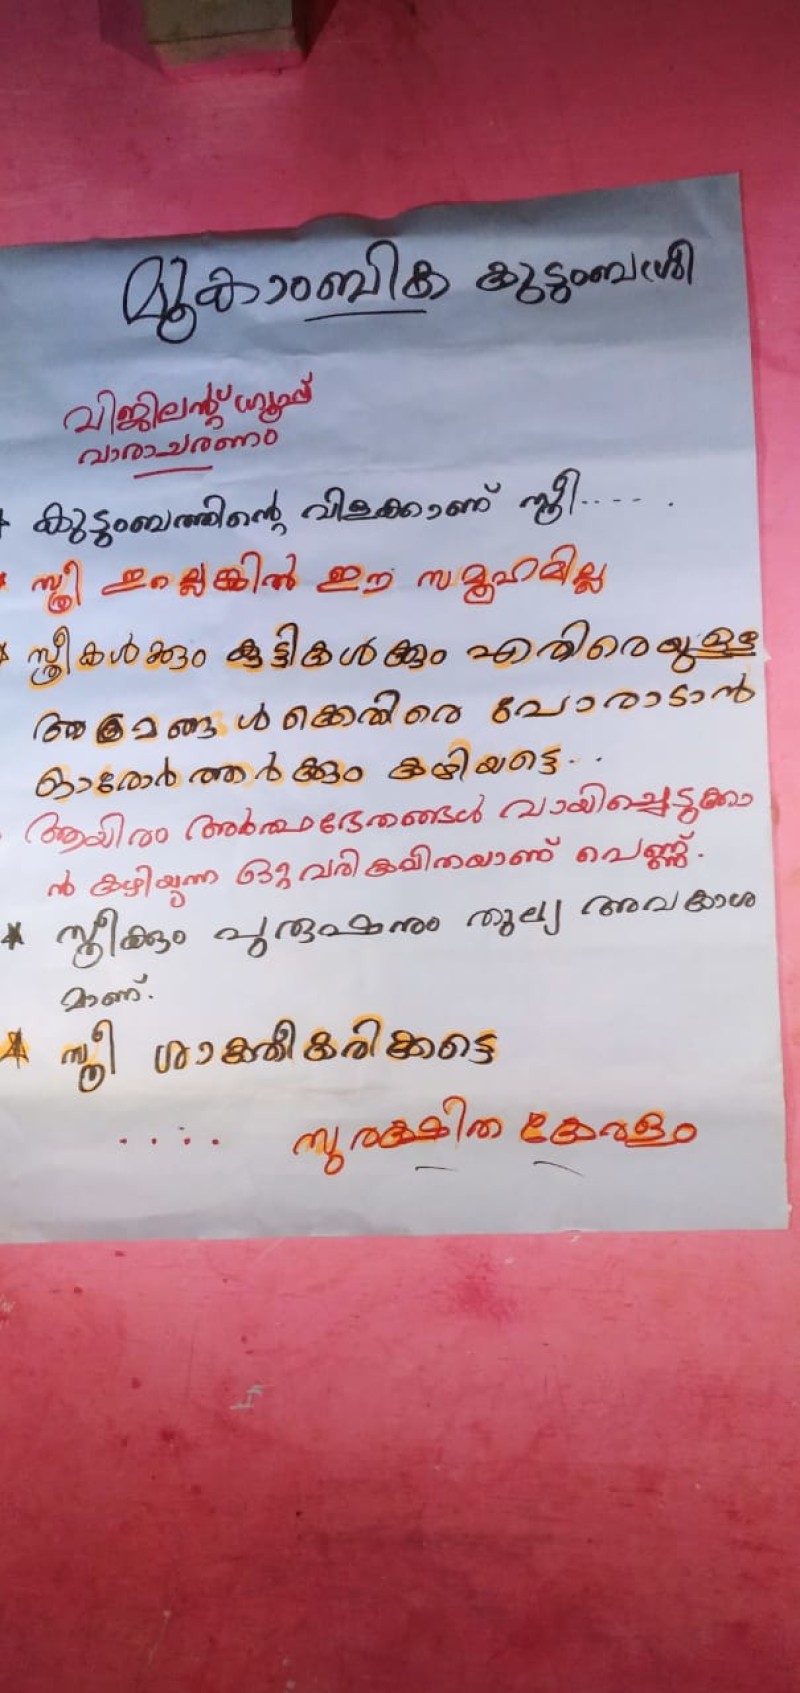 മൂകാംബിക കുടുംബശ്രീ
വിജിലന്റ് ഗ്രൂപ്പ്
വാരാചരണം
* കുടുംബത്തിന്റെ വിളക്കാണ് സ്ത്രീ..... .
* സ്ത്രീ ഇല്ലെങ്കിൽ ഈ സമൂഹമില്ല
* സ്ത്രീകൾക്കും കുട്ടികൾക്കും എതിരെയുള്ള
അക്രമങ്ങൾക്കെതിരെ പോരാടാൻ
ഓരോർത്തർക്കും കഴിയട്ടെ...
ആയിരം അർത്ഥഭേതങ്ങൾ വായിച്ചെടുക്കാ
ൻ കഴിയുന്ന ഒറ്റ വരി കവിതയാണ് പെണ്ണ്.
* സ്ത്രീക്കും പുരുഷനും തുല്യ അവകാശ
മാണ്.
* സ്ത്രീ ശാക്തീകരിക്കട്ടെ
.... സുരക്ഷിത കേരളം